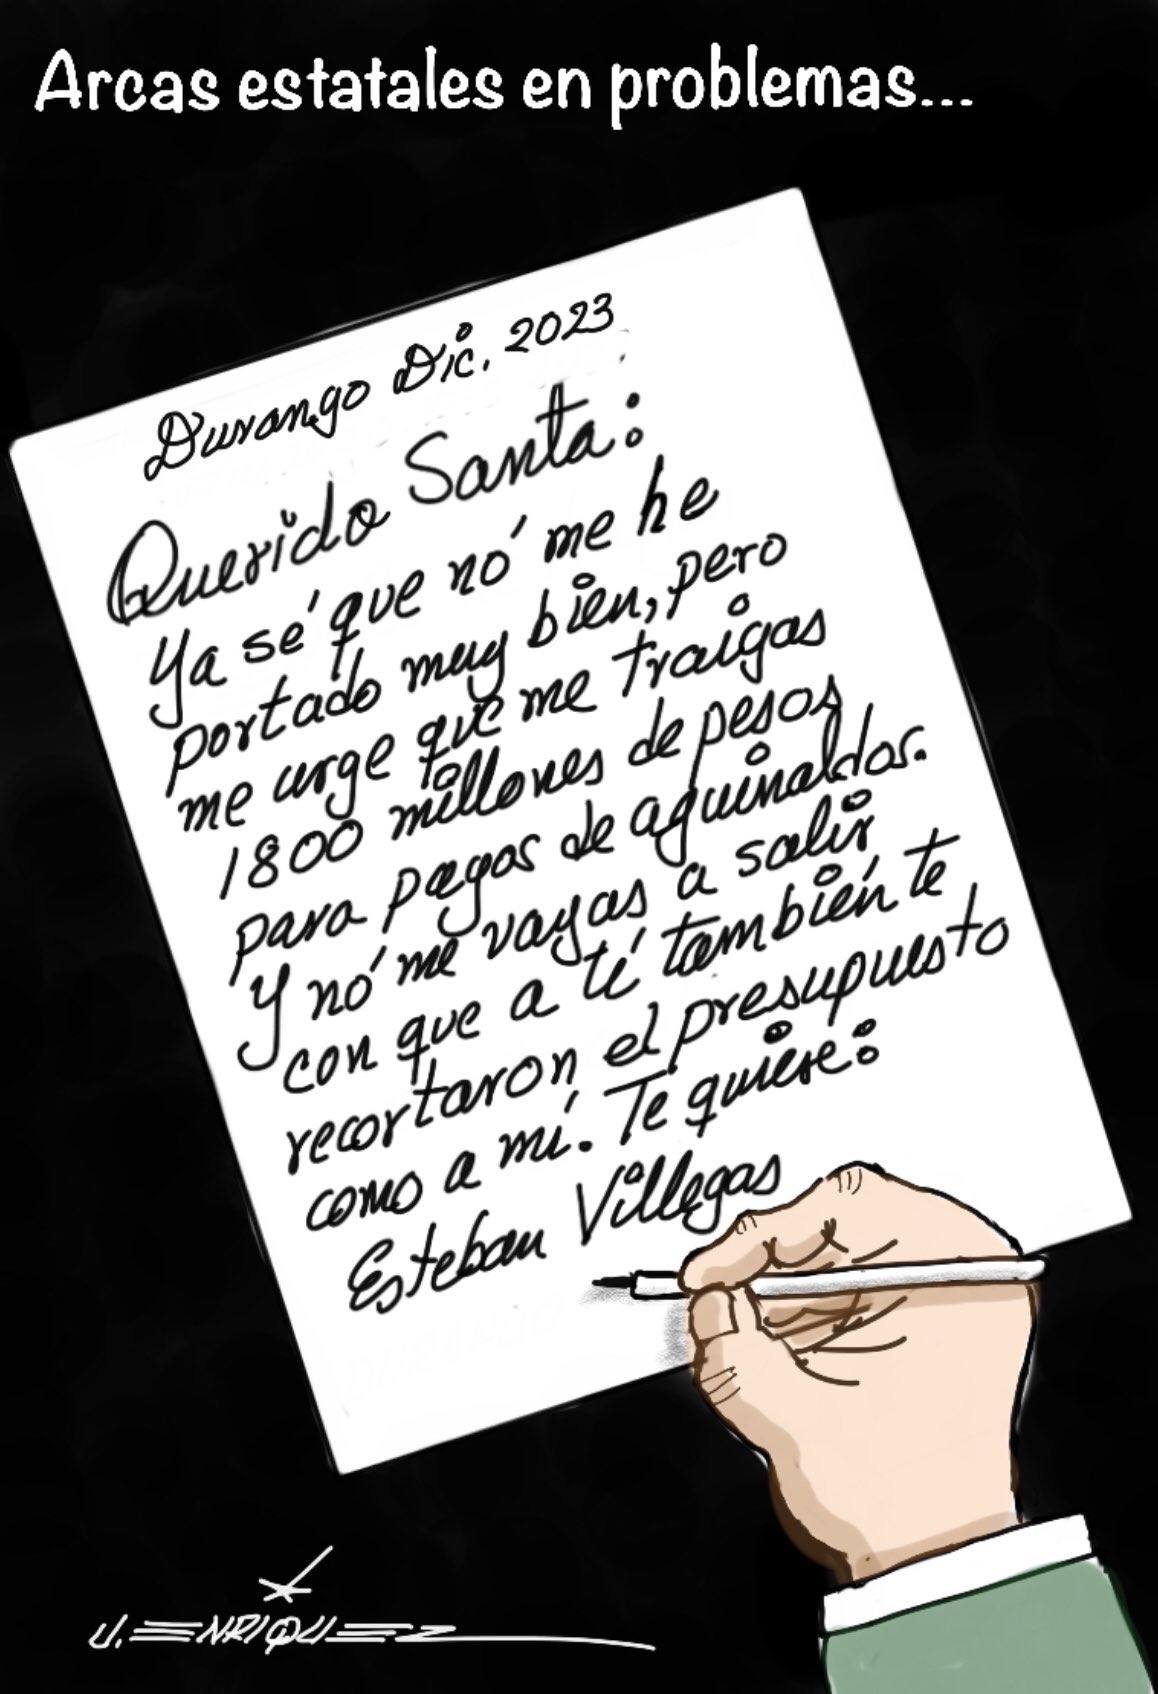 Arcas estatales en problemas...
Durango Dic. 2023
Querido Santa:
Ya sé que nó me he
portado muy bien, pero
me urge que me traigas
1800 millones de pesos
para pagos de aguinaldos.
Y nó me vayas a salir
con que a tí también te
recortaron el presupuesto
como a mí. Te quiere:
Esteban Villegas
J. ENRIQUEZ